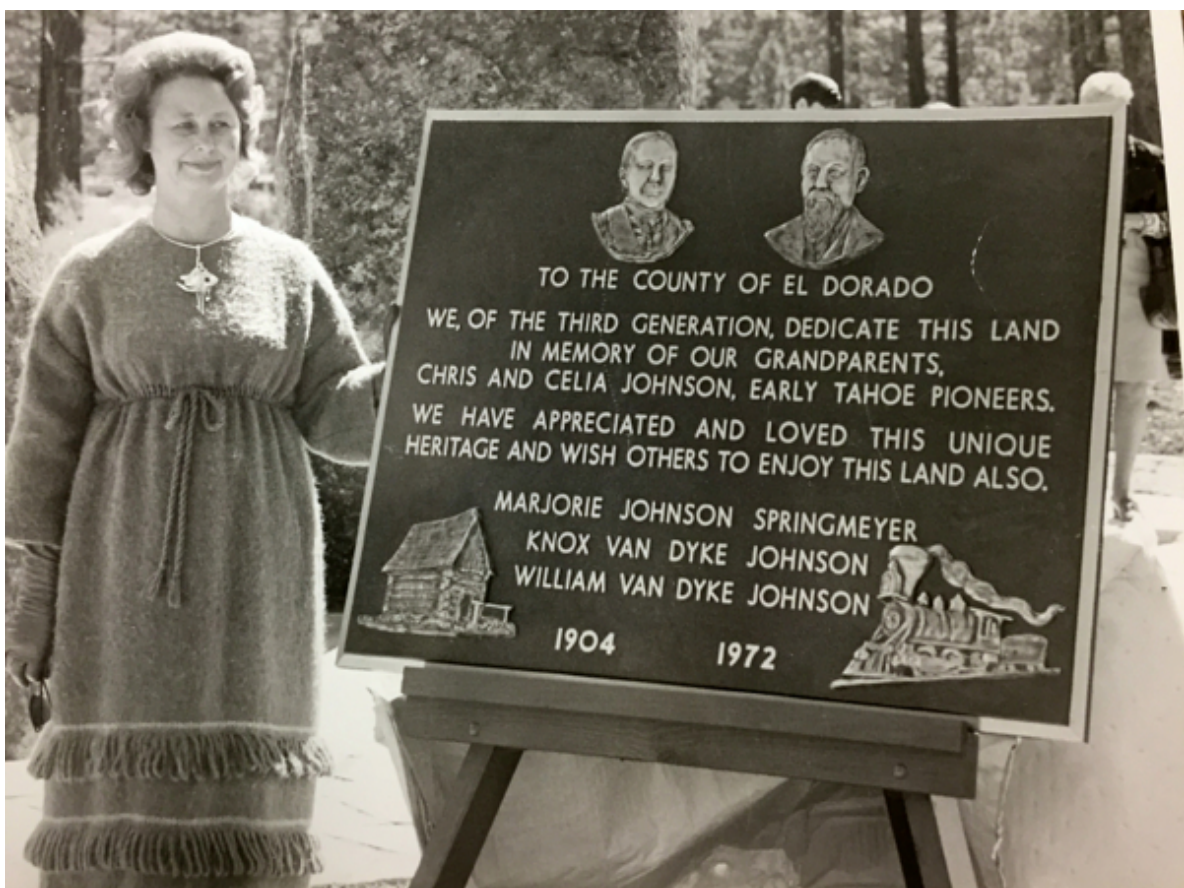 TO THE COUNTY OF EL DORADO
WE, OF THE THIRD GENERATION, DEDICATE THIS LAND
IN MEMORY OF OUR GRANDPARENTS,
CHRIS AND CELIA JOHNSON, EARLY TAHOE PIONEERS.
WE HAVE APPRECIATED AND LOVED THIS UNIQUE
HERITAGE AND WISH OTHERS TO ENJOY THIS LAND ALSO.
MARJORIE JOHNSON SPRINGMEYER
KNOX VAN DYKE JOHNSON
WILLIAM VAN DYKE JOHNSON
1904 1972